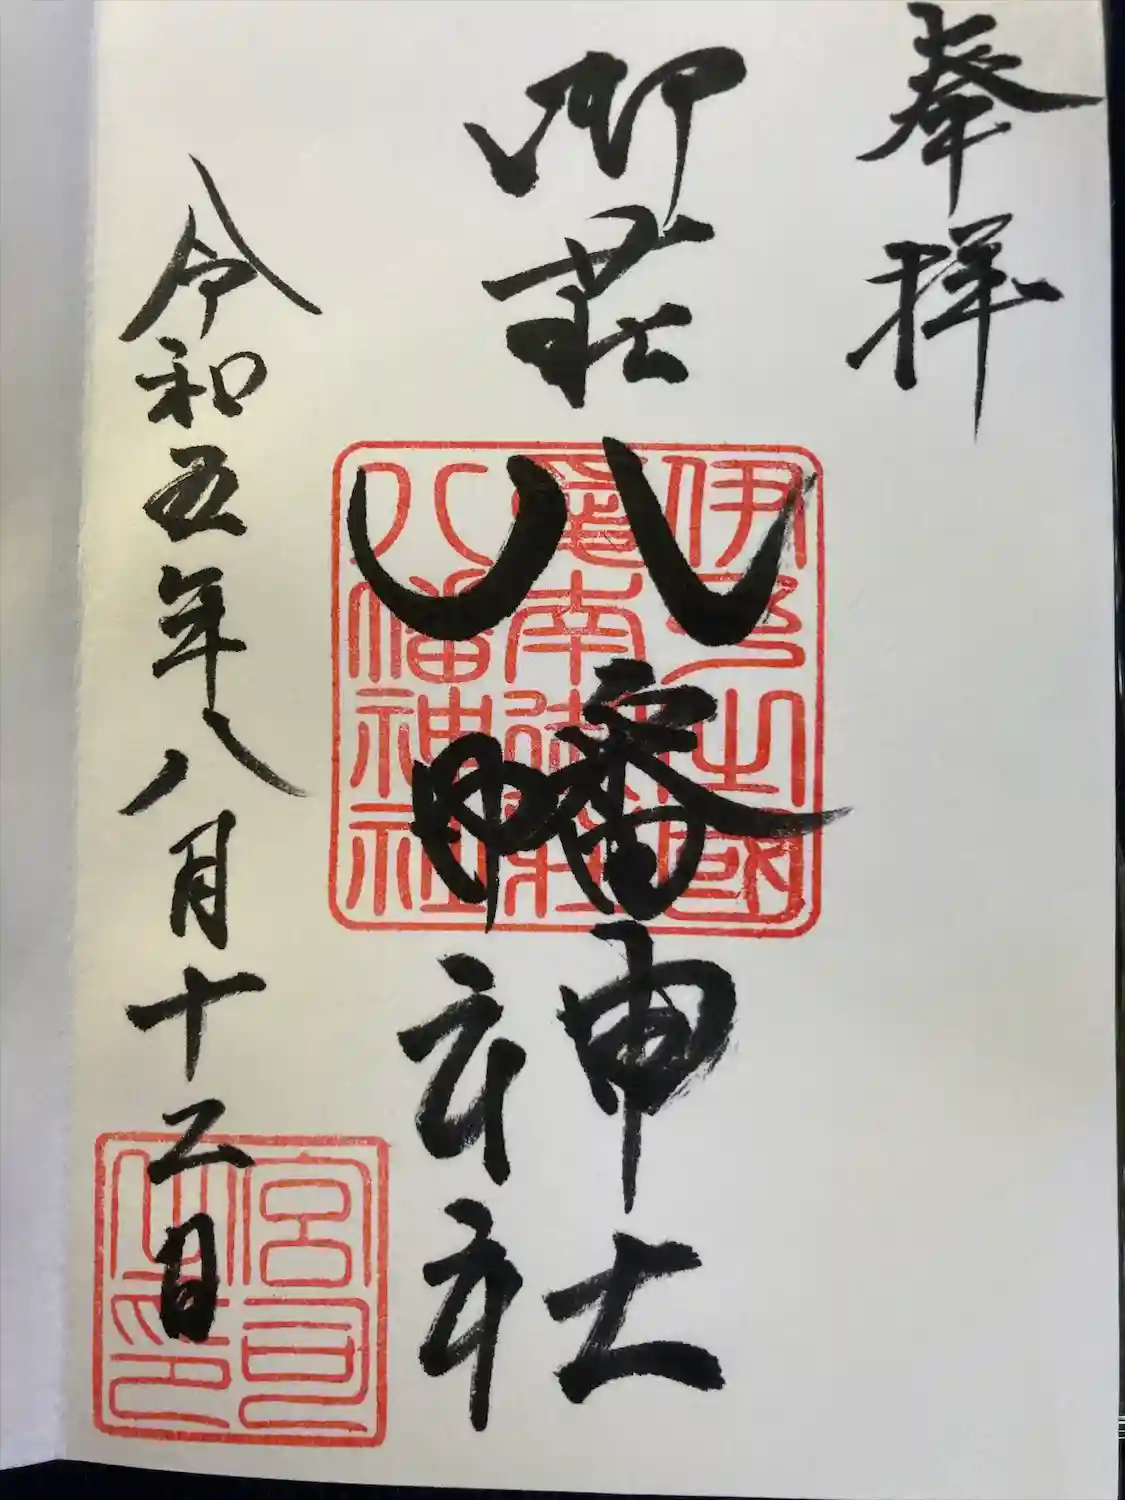 奉拝
御荘八幡神社
令和五年八月十二日
伊豫之國
南御荘
八幡神社
宮司
之印